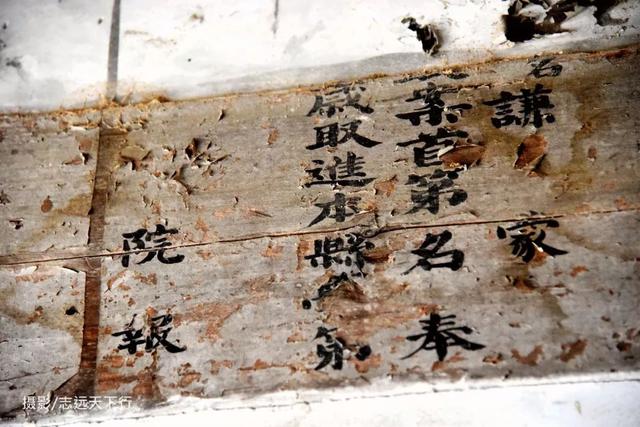 名謙家
案首第名奉
歲取進本縣
院報
摄影/志远天下行